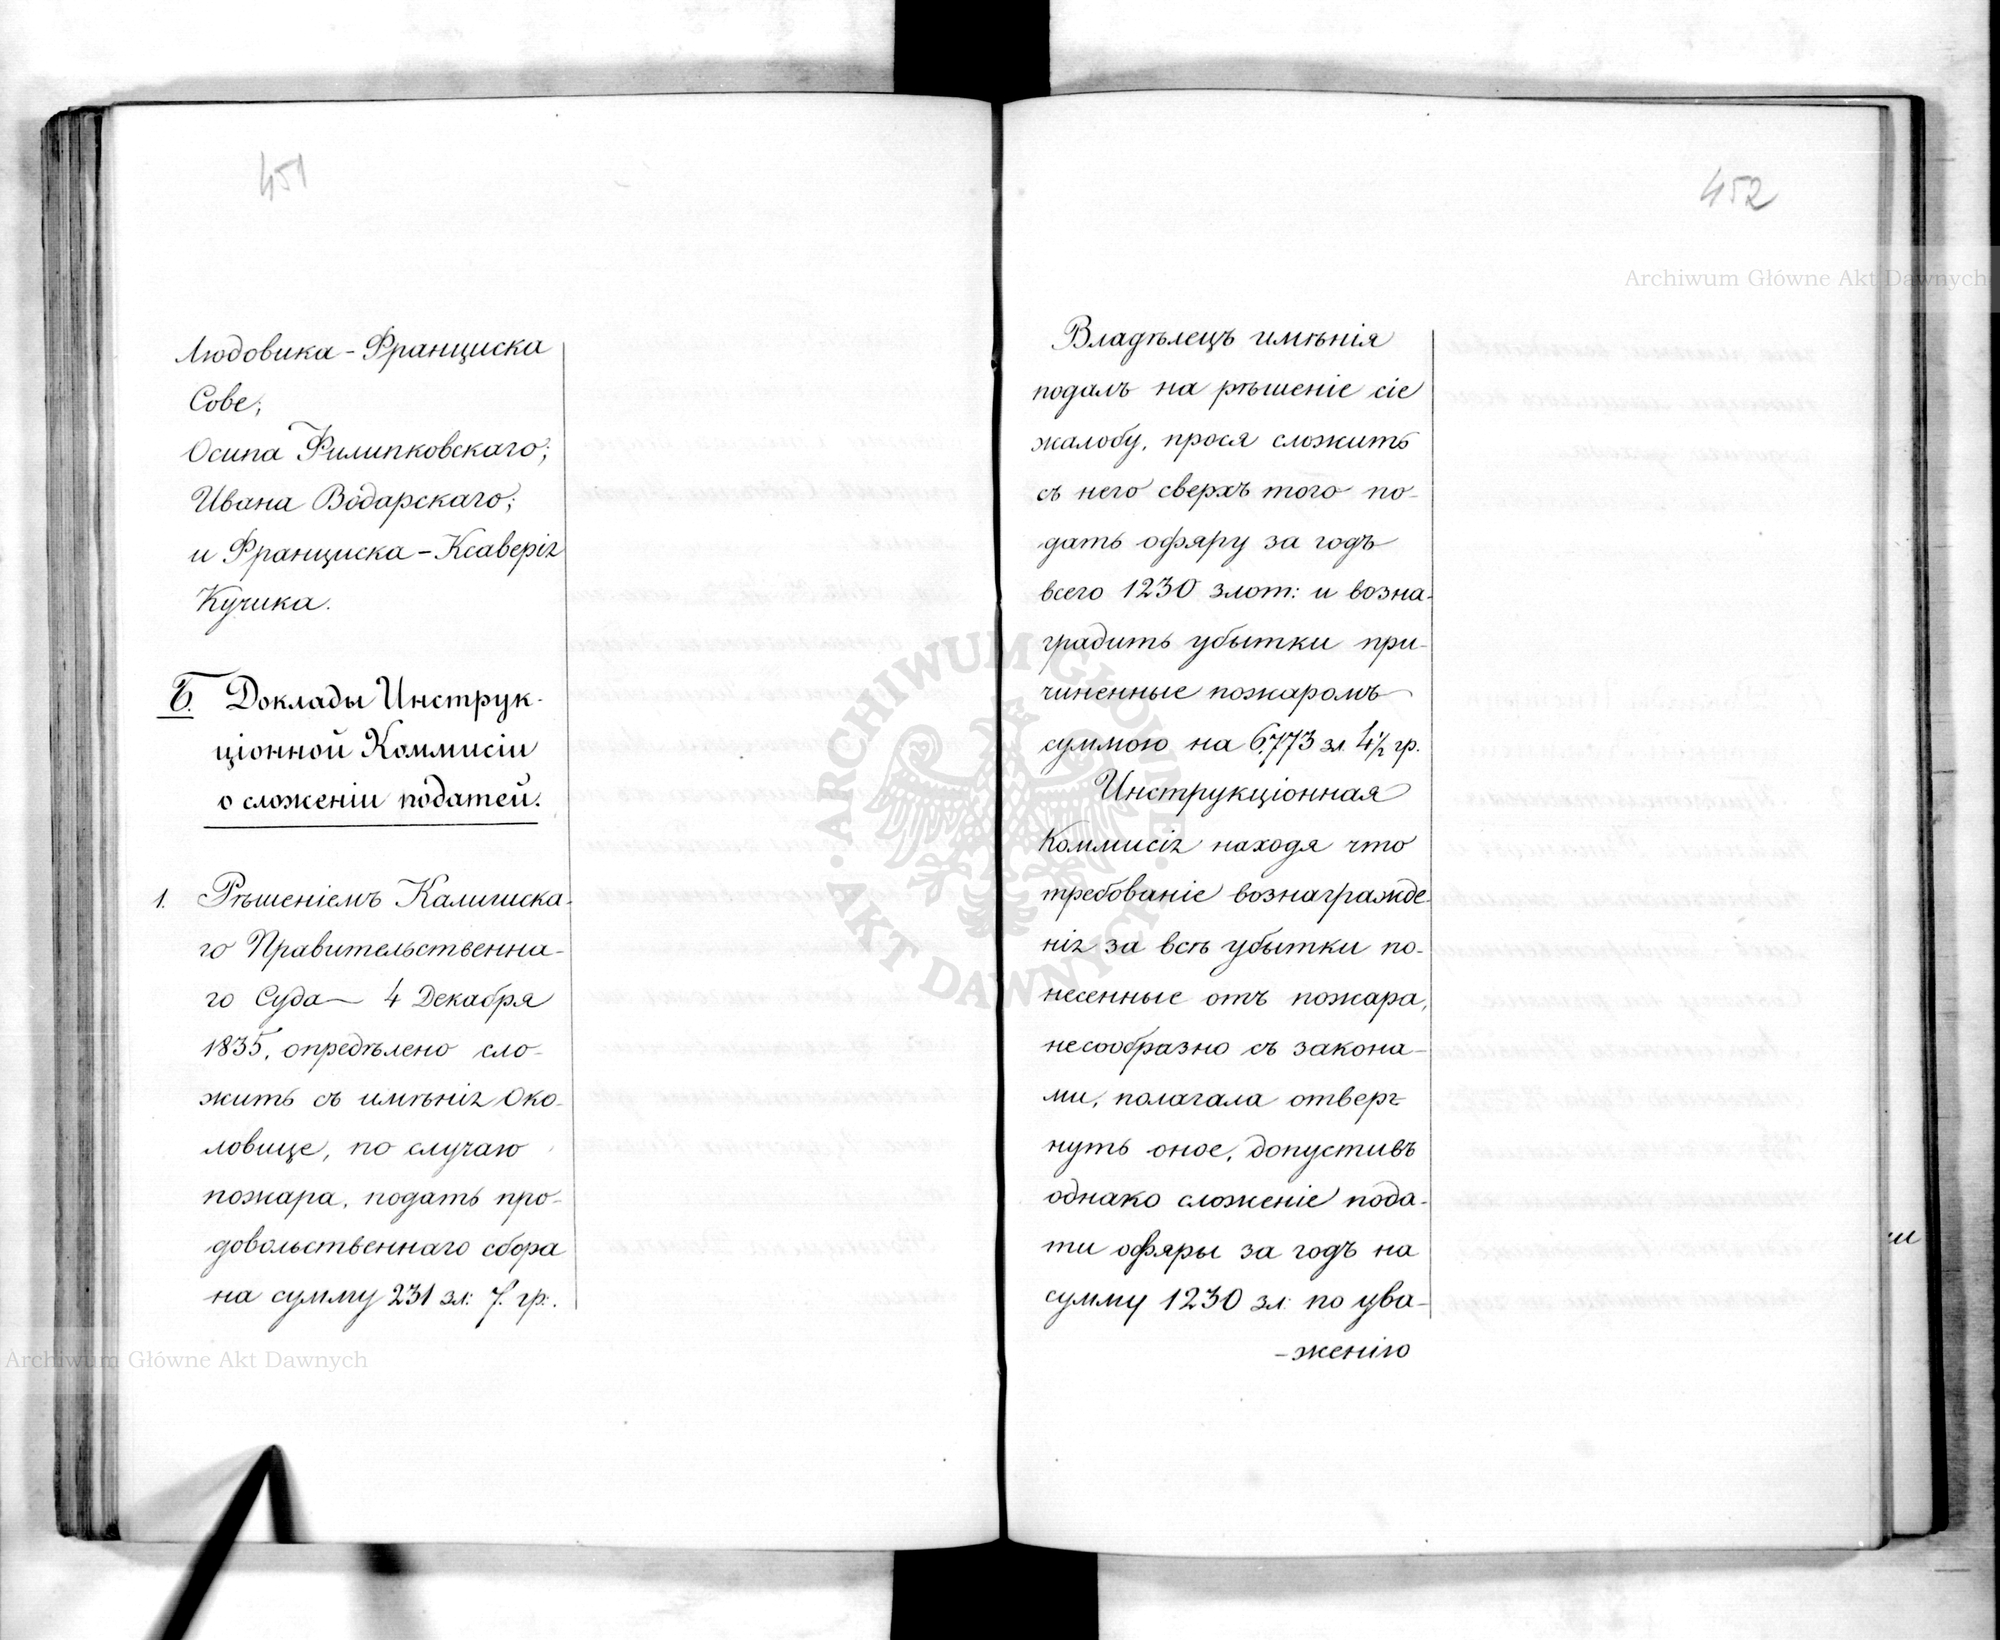 451
Людовика-Франциска
Сове;
Осипа Филипковскаго;
Ивана Водарскаго;
и Франциска-Ксаверія
Кучика.
Б. Доклады Инструк-
ціонной Коммисіи
о сложеніи податей.
1. Рѣшеніемъ Калишска-
го Правительственна-
го Суда — 4 Декабря
1835, опредѣлено сло-
жить съ имѣнія Око-
ловице, по случаю
пожара, подать про-
довольственнаго сбора
на сумму 231 зл: 7. гр:.
Archiwum Główne Akt Dawnych
452
Archiwum Główne Akt Dawnych
Владѣлецъ имѣнія
подалъ на рѣшеніе сіе
жалобу, прося сложить
съ него сверхъ того по-
дать офяру за годъ
всего 1230 злот: и возна-
градить убытки при-
чиненные пожаромъ
суммою на 6,773 зл. 4½ гр.
Инструкціонная
Коммисія находя что
требованіе вознагражде-
нія за всѣ убытки по-
несенные отъ пожара,
несообразно съ закона-
ми, полагала отверг-
нуть оное, допустивъ
однако сложеніе пода-
ти офяры за годъ на
сумму 1230 зл: по ува-
-женію
ARCHIWUM GŁÓWNE AKT DAWNYCH